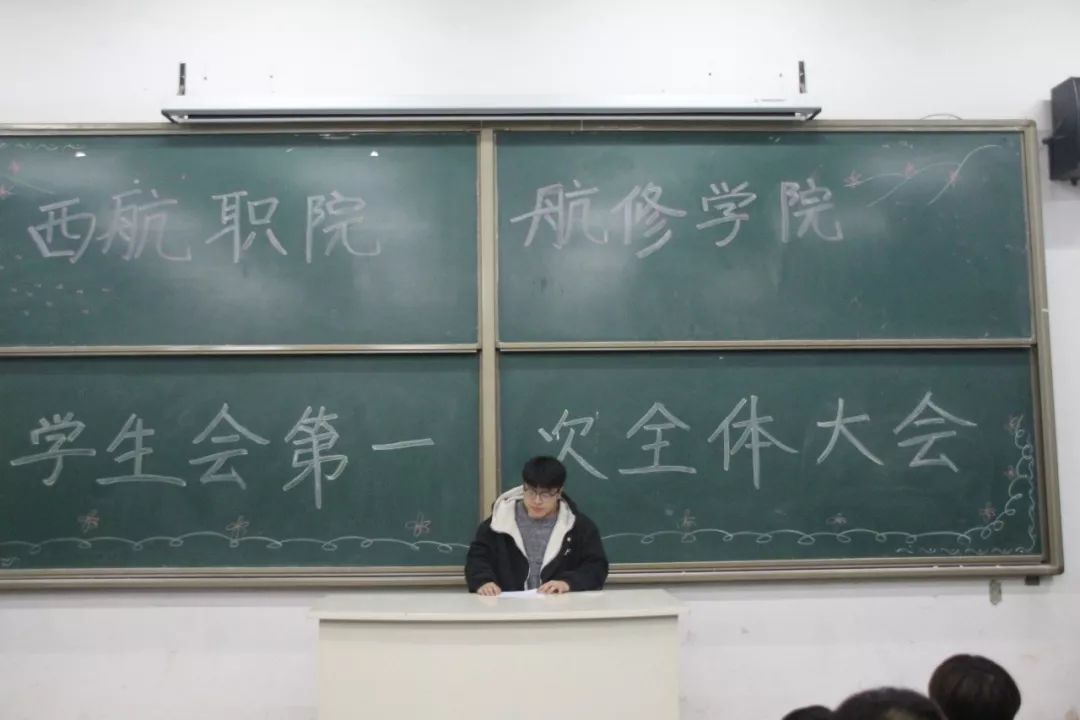 西航职院 航修学院
学生会第一次全体大会